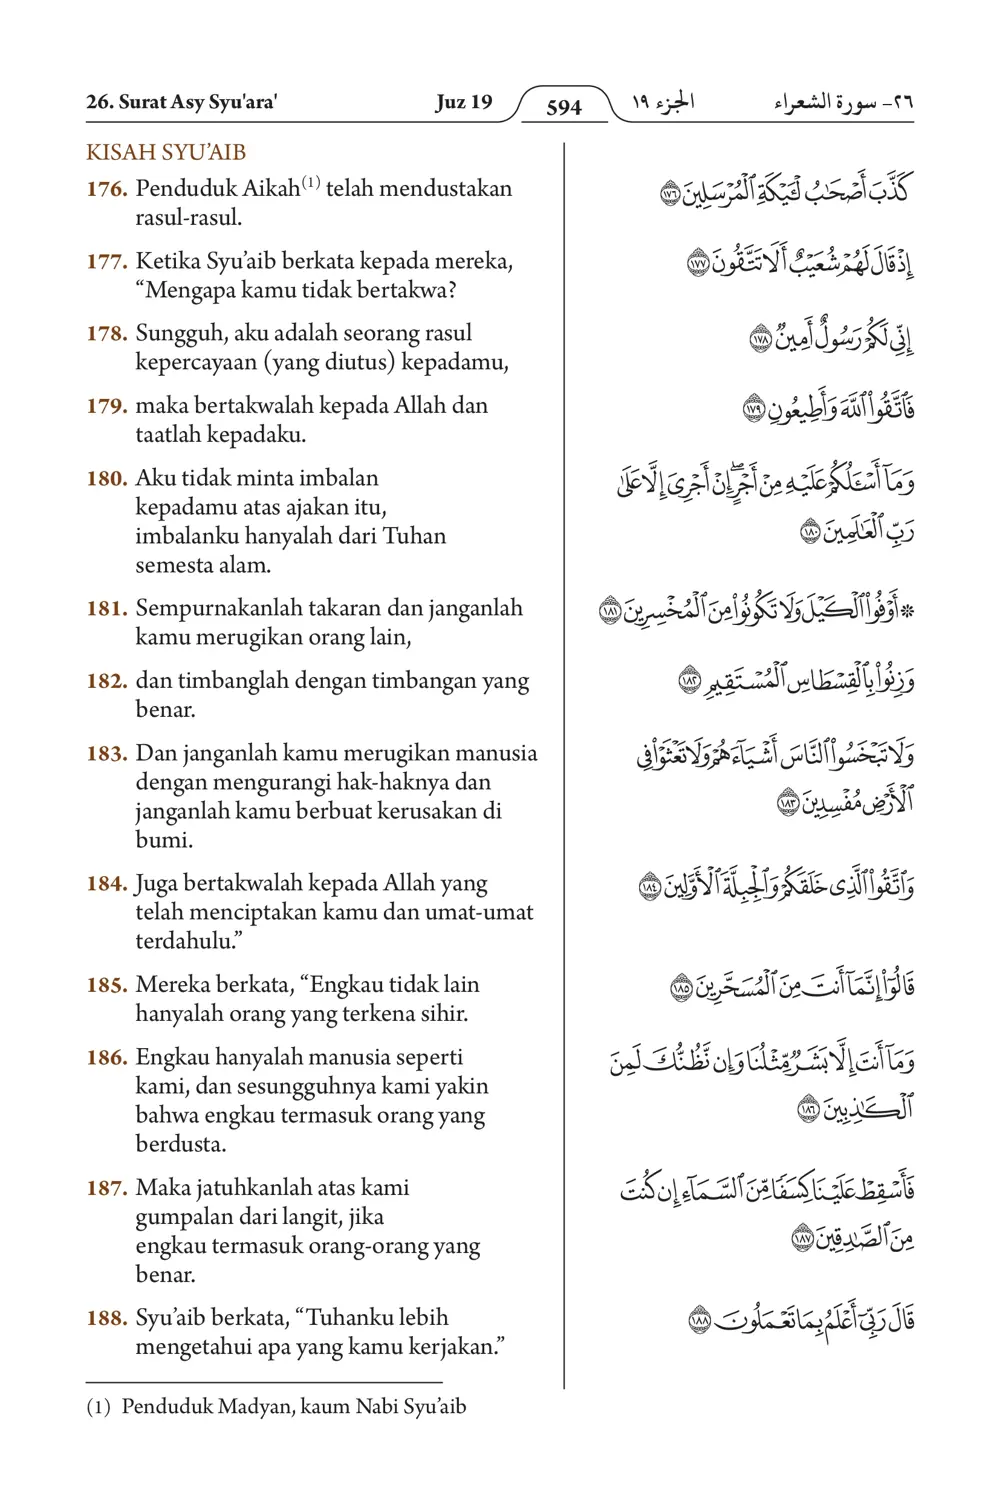 26. Surat Asy Syu'ara' Juz 19 594 الجزء ١٩ ٢٦- سورة الشعراء
KISAH SYU’AIB
176. Penduduk Aikah(1) telah mendustakan
rasul-rasul.
177. Ketika Syu’aib berkata kepada mereka,
“Mengapa kamu tidak bertakwa?
178. Sungguh, aku adalah seorang rasul
kepercayaan (yang diutus) kepadamu,
179. maka bertakwalah kepada Allah dan
taatlah kepadaku.
180. Aku tidak minta imbalan
kepadamu atas ajakan itu,
imbalanku hanyalah dari Tuhan
semesta alam.
181. Sempurnakanlah takaran dan janganlah
kamu merugikan orang lain,
182. dan timbanglah dengan timbangan yang
benar.
183. Dan janganlah kamu merugikan manusia
dengan mengurangi hak-haknya dan
janganlah kamu berbuat kerusakan di
bumi.
184. Juga bertakwalah kepada Allah yang
telah menciptakan kamu dan umat-umat
terdahulu.”
185. Mereka berkata, “Engkau tidak lain
hanyalah orang yang terkena sihir.
186. Engkau hanyalah manusia seperti
kami, dan sesungguhnya kami yakin
bahwa engkau termasuk orang yang
berdusta.
187. Maka jatuhkanlah atas kami
gumpalan dari langit, jika
engkau termasuk orang-orang yang
benar.
188. Syu’aib berkata, “Tuhanku lebih
mengetahui apa yang kamu kerjakan.”
(1) Penduduk Madyan, kaum Nabi Syu’aib
كَذَّبَ أَصْحَٰبُ لْـَٔيْكَةِ ٱلْمُرْسَلِينَ ١٧٦
إِذْ قَالَ لَهُمْ شُعَيْبٌ أَلَا تَتَّقُونَ ١٧٧
إِنِّى لَكُمْ رَسُولٌ أَمِينٌ ١٧٨
فَٱتَّقُوا۟ ٱللَّهَ وَأَطِيعُونِ ١٧٩
وَمَآ أَسْـَٔلُكُمْ عَلَيْهِ مِنْ أَجْرٍ ۖ إِنْ أَجْرِىَ إِلَّا عَلَىٰ
رَبِّ ٱلْعَٰلَمِينَ ١٨٠
۞ أَوْفُوا۟ ٱلْكَيْلَ وَلَا تَكُونُوا۟ مِنَ ٱلْمُخْسِرِينَ ١٨١
وَزِنُوا۟ بِٱلْقِسْطَاسِ ٱلْمُسْتَقِيمِ ١٨٢
وَلَا تَبْخَسُوا۟ ٱلنَّاسَ أَشْيَآءَهُمْ وَلَا تَعْثَوْا۟ فِى
ٱلْأَرْضِ مُفْسِدِينَ ١٨٣
وَٱتَّقُوا۟ ٱلَّذِى خَلَقَكُمْ وَٱلْجِبِلَّةَ ٱلْأَوَّلِينَ ١٨٤
قَالُوٓا۟ إِنَّمَآ أَنتَ مِنَ ٱلْمُسَحَّرِينَ ١٨٥
وَمَآ أَنتَ إِلَّا بَشَرٌ مِّثْلُنَا وَإِن نَّظُنُّكَ لَمِنَ
ٱلْكَٰذِبِينَ ١٨٦
فَأَسْقِطْ عَلَيْنَا كِسَفًا مِّنَ ٱلسَّمَآءِ إِن كُنتَ
مِنَ ٱلصَّٰدِقِينَ ١٨٧
قَالَ رَبِّىٓ أَعْلَمُ بِمَا تَعْمَلُونَ ١٨٨